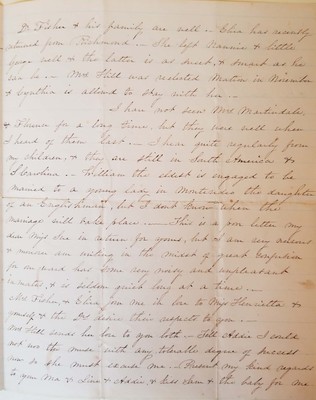 Dr Fisher & his family are well – Eliza has recently
returned from Richmond – She left Nannie & little
George well & the latter is as sweet, & smart as he
can be – Mrs Hill was reelected Matron in November
& Cynthia is allowed to stay with her –
I have not seen Mrs Martindale,
& Florence for a long time, but they were well when
I heard of them last – I hear quite regularly from
my children, & they are still in South America &
S Carolina – William the eldest is engaged to be
married to a young lady in Montevideo the daughter
of an Englishman, but I don't know when the
marriage will take place – This is a poor letter my
dear Miss Sue in return for yours, but I am very nervous
& moreover am writing in the midst of great confusion
for our ward has some very noisy and unpleasant
inmates, & is seldom quiet long at a time –
Mrs Fisher, & Eliza join me in love to Miss Henrietta &
yourself & the Dr desires their respects to you –
Mrs Hill sends her love to you both – Tell Addie I could
not use the music with any tolerable degree of success
now so she must excuse me – Present my kind regards
to your Ma & Line & Addie, & kiss them & the baby for me